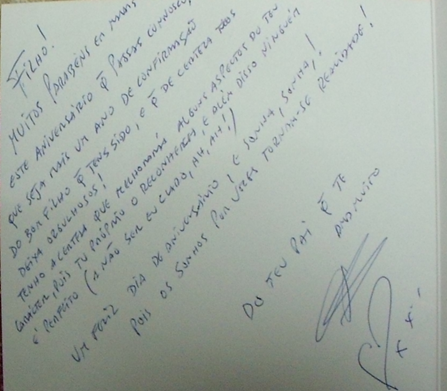 FILHO!
MUITOS PARABÉNS EM MAIS
ESTE ANIVERSÁRIO Q̃ PASSAS CONNOSCO,
QUE SEJA MAIS UM ANO DE CONFIRMAÇÃO
DO BOM FILHO Q̃ TENS SIDO, E Q̃ DE CERTEZA
DEIXA ORGULHOSOS!
TENHO A CERTEZA QUE MELHORARÁ ALGUNS ASPECTOS DO TEU
CARÁCTER, POIS TU PRÓPRIO O RECONHECERÁ, E ALÉM DISSO NINGUÉM
É PERFEITO (A NÃO SER EU CLARO, AH, AH!)
UM FELIZ DIA DE ANIVERSÁRIO! E SONHA, SONHA!
POIS OS SONHOS POR VEZES TORNAM-SE REALIDADE!
DO TEU PAI Q̃ TE
MUITO